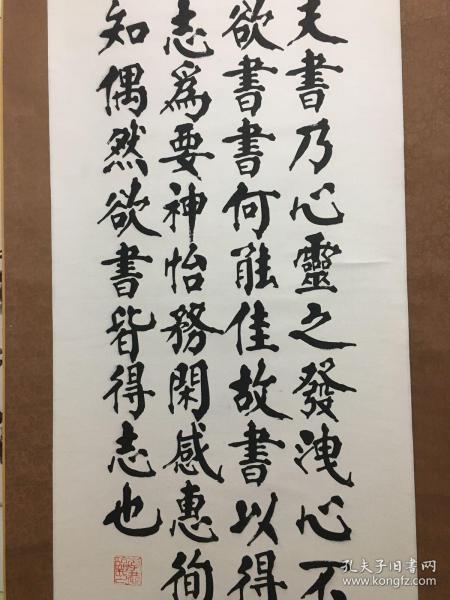 夫書乃心靈之發洩心不
欲書書何能佳故書以得
志為要神怡務閑感惠徇
知偶然欲書皆得志也
孔夫子旧書网
www.kongfz.com